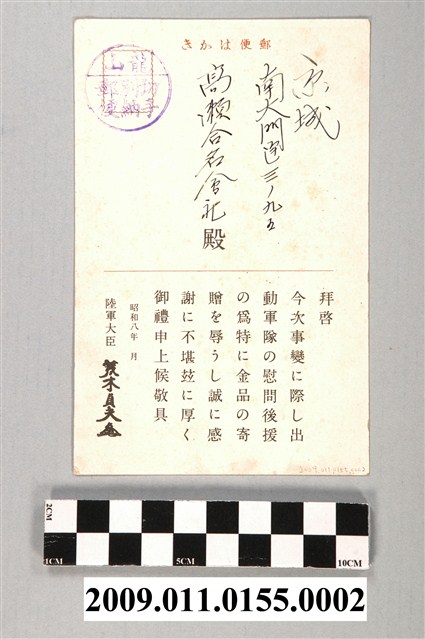 郵便はがき
京城
南大門通三ノ九五
高瀬合名會社殿
拜啓
今次事變に際し出
動軍隊の慰問後援
の爲特に金品の寄
贈を辱うし誠に感
謝に不堪玆に厚く
御禮申上候敬具
昭和八年 月
陸軍大臣 荒木貞夫
龍山
郵便
2CM
1CM
5CM
10CM
2009.011.0155.0002
2009.011.0155.0002